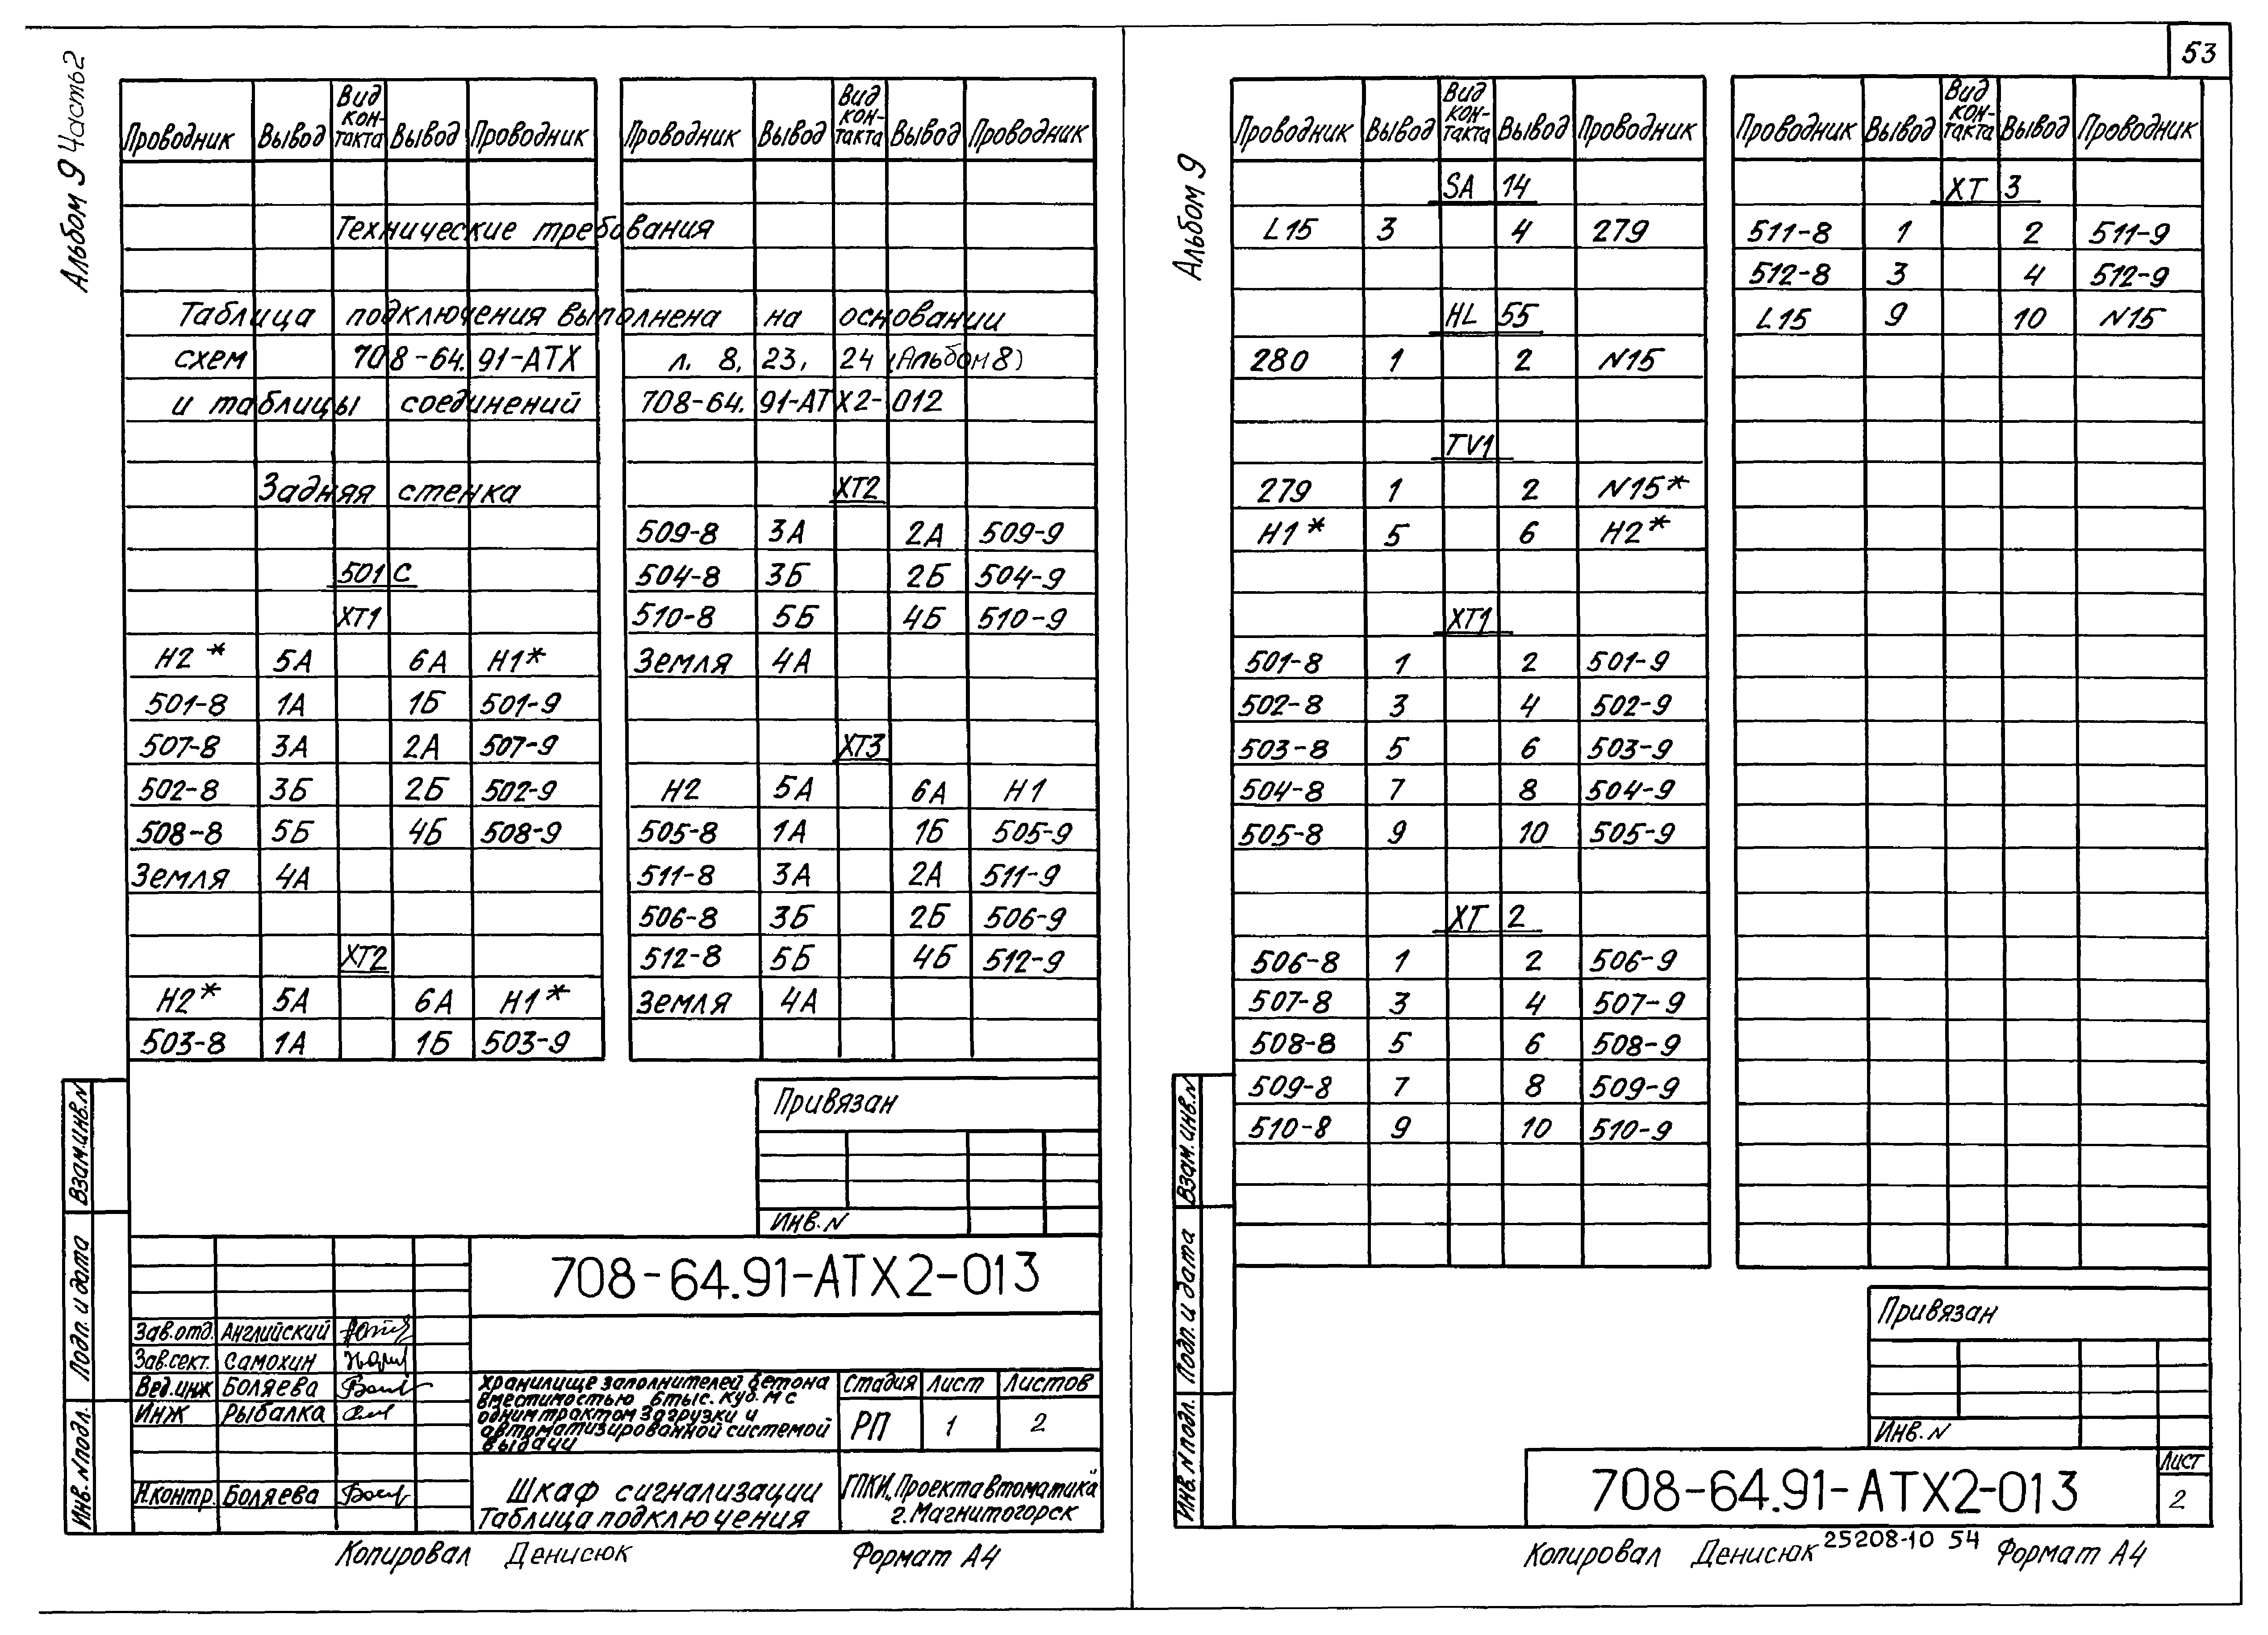 53
Альбом 9 Часть 2
Проводник Вывод Вид кон-такта Вывод Проводник
Технические требования
Таблица подключения выполнена на основании
схем 708-64.91-АТХ л. 8, 23, 24 (Альбом 8)
и таблицы соединений 708-64.91-АТХ2-012
Задняя стенка
501С
ХТ1
Н2* 5А 6А Н1*
501-8 1А 1Б 501-9
507-8 3А 2А 507-9
502-8 3Б 2Б 502-9
508-8 5Б 4Б 508-9
Земля 4А
ХТ2
Н2* 5А 6А Н1*
503-8 1А 1Б 503-9
Проводник Вывод Вид кон-такта Вывод Проводник
ХТ2
509-8 3А 2А 509-9
504-8 3Б 2Б 504-9
510-8 5Б 4Б 510-9
Земля 4А
ХТ3
Н2 5А 6А Н1
505-8 1А 1Б 505-9
511-8 3А 2А 511-9
506-8 3Б 2Б 506-9
512-8 5Б 4Б 512-9
Земля 4А
Привязан
Инв. N
Взам. инв. N
Подп. и дата
Инв. N подл.
708-64.91-АТХ2-013
Зав. отд. Английский
Зав. сект. Самохин
Вед. инж Боляева
Инж Рыбалка
Н. контр. Боляева
Хранилище заполнителей бетона
вместимостью 6 тыс. куб. м с
одним трактом загрузки и
автоматизированной системой
выдачи
Стадия Лист Листов
РП 1 2
Шкаф сигнализации
Таблица подключения
ГПКИ „Проектавтоматика"
г. Магнитогорск
Копировал Денисюк Формат А4
Альбом 9
Проводник Вывод Вид кон-такта Вывод Проводник
SA 14
L15 3 4 279
HL 55
280 1 2 N15
TV1
279 1 2 N15*
Н1* 5 6 Н2*
ХТ1
501-8 1 2 501-9
502-8 3 4 502-9
503-8 5 6 503-9
504-8 7 8 504-9
505-8 9 10 505-9
ХТ 2
506-8 1 2 506-9
507-8 3 4 507-9
508-8 5 6 508-9
509-8 7 8 509-9
510-8 9 10 510-9
Проводник Вывод Вид кон-такта Вывод Проводник
ХТ 3
511-8 1 2 511-9
512-8 3 4 512-9
L15 9 10 N15
Привязан
Инв. N
Взам. инв. N
Подп. и дата
Инв. N подл.
708-64.91-АТХ2-013
Лист
2
Копировал Денисюк 25208-10 54 Формат А4